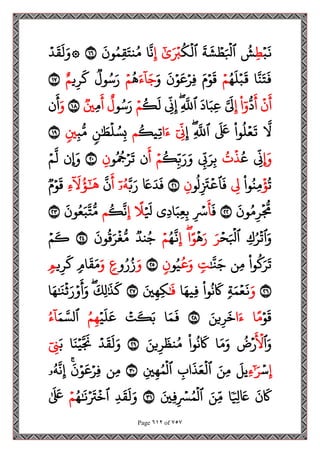 نَبْطِشُ ٱلْبَطْشَةَ ٱلْكُبْرَىٰٓ إِنَّا مُنتَقِمُونَ ١٦ ۞ وَلَقَدْ
فَتَنَّا قَبْلَهُمْ قَوْمَ فِرْعَوْنَ وَجَآءَهُمْ رَسُولٌ كَرِيمٌ ١٧
أَنْ أَدُّوٓا۟ إِلَىَّ عِبَادَ ٱللَّهِ ۖ إِنِّى لَكُمْ رَسُولٌ أَمِينٌ ١٨ وَأَن
لَّا تَعْلُوا۟ عَلَى ٱللَّهِ ۖ إِنِّىٓ ءَاتِيكُم بِسُلْطَٰنٍ مُّبِينٍ
١٩ وَإِنِّى عُذْتُ بِرَبِّى وَرَبِّكُمْ أَن تَرْجُمُونِ ٢٠ وَإِن لَّمْ
تُؤْمِنُوا۟ لِى فَٱعْتَزِلُونِ ٢١ فَدَعَا رَبَّهُۥٓ أَنَّ هَٰٓؤُلَآءِ قَوْمٌ
مُّجْرِمُونَ ٢٢ فَأَسْرِ بِعِبَادِى لَيْلًا إِنَّكُم مُّتَّبَعُونَ ٢٣
وَٱتْرُكِ ٱلْبَحْرَ رَهْوًا ۖ إِنَّهُمْ جُندٌ مُّغْرَقُونَ ٢٤ كَمْ
تَرَكُوا۟ مِن جَنَّٰتٍ وَعُيُونٍ ٢٥ وَزُرُوعٍ وَمَقَامٍ كَرِيمٍ
٢٦ وَنَعْمَةٍ كَانُوا۟ فِيهَا فَٰكِهِينَ ٢٧ كَذَٰلِكَ ۖ وَأَوْرَثْنَٰهَا
قَوْمًا ءَاخَرِينَ ٢٨ فَمَا بَكَتْ عَلَيْهِمُ ٱلسَّمَآءُ
وَٱلْأَرْضُ وَمَا كَانُوا۟ مُنظَرِينَ ٢٩ وَلَقَدْ نَجَّيْنَا بَنِىٓ
إِسْرَٰٓءِيلَ مِنَ ٱلْعَذَابِ ٱلْمُهِينِ ٣٠ مِن فِرْعَوْنَ ۚ إِنَّهُۥ
كَانَ عَالِيًا مِّنَ ٱلْمُسْرِفِينَ ٣١ وَلَقَدِ ٱخْتَرْنَٰهُمْ عَلَىٰ
Page ٦١٢ of ٧٥٧